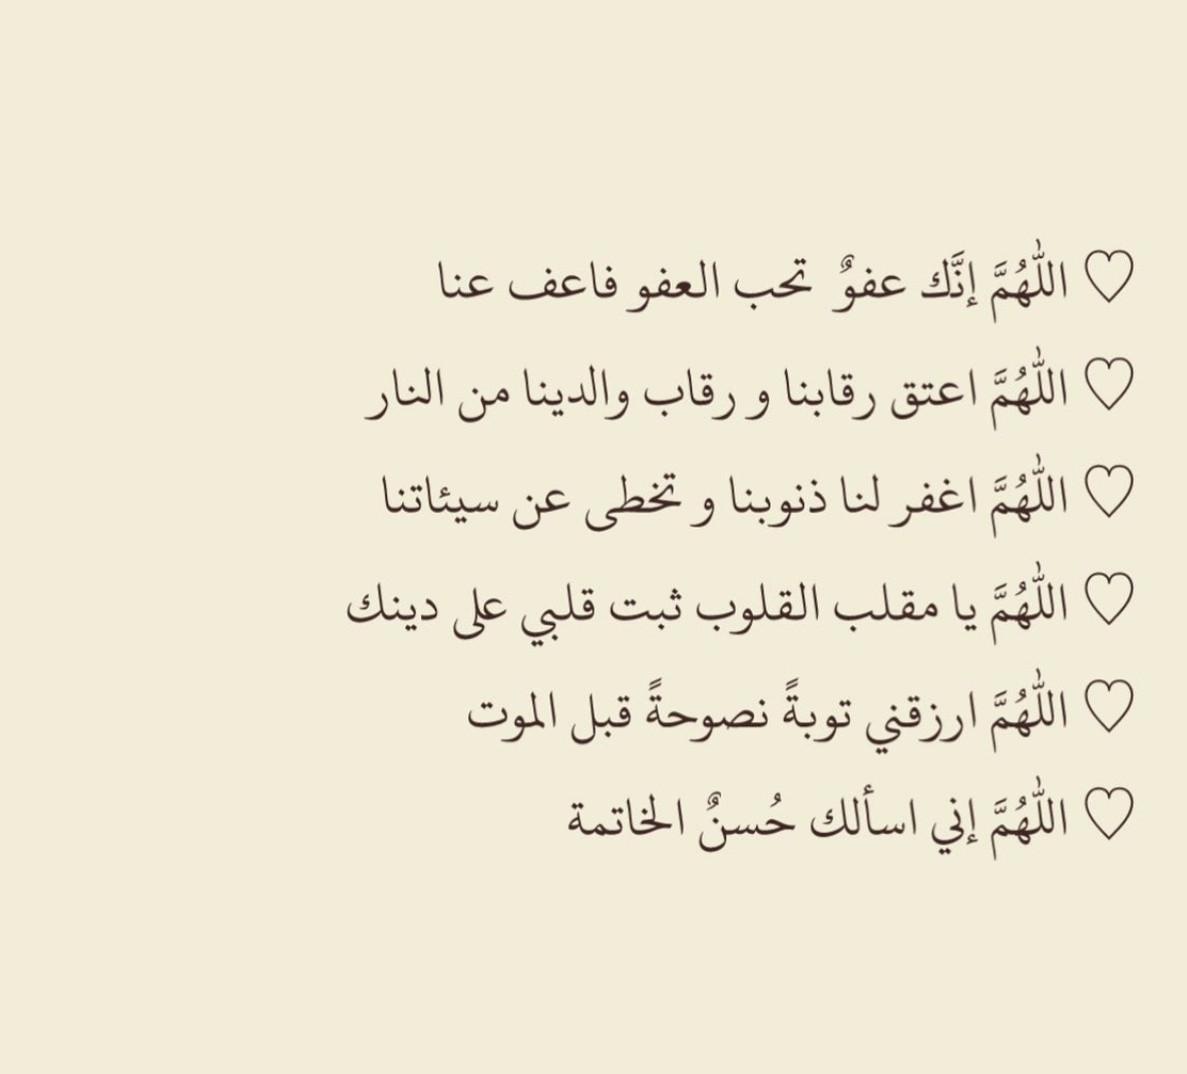 ♡ اللّٰهُمَّ إنَّك عفوٌ تحب العفو فاعف عنا
♡ اللّٰهُمَّ اعتق رقابنا و رقاب والدينا من النار
♡ اللّٰهُمَّ اغفر لنا ذنوبنا و تخطى عن سيئاتنا
♡ اللّٰهُمَّ يا مقلب القلوب ثبت قلبي على دينك
♡ اللّٰهُمَّ ارزقني توبةً نصوحةً قبل الموت
♡ اللّٰهُمَّ إني اسألك حُسنٌ الخاتمة